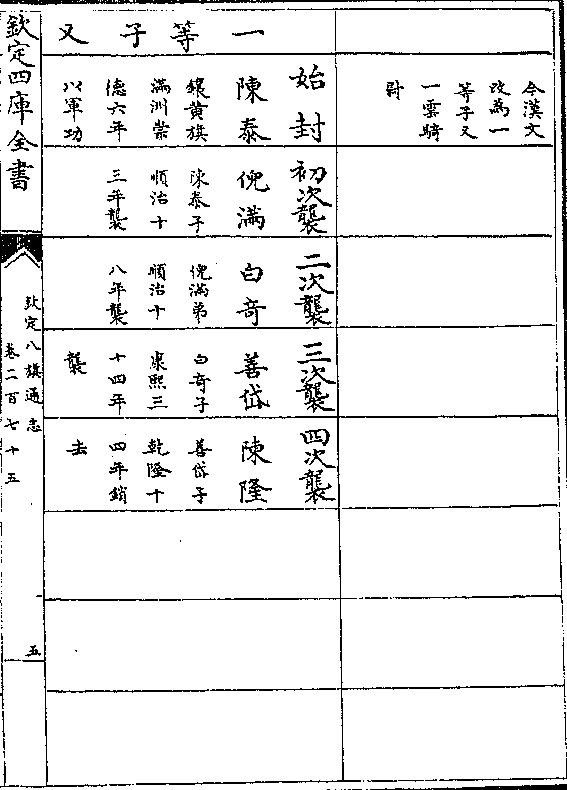 今漢文
改為一
等子又
一雲騎
尉
一等子又
始封
陳泰
鑲黄旗
滿洲崇
德六年
以軍功
初次襲
倪滿
陳泰子
順治十
三年襲
二次襲
白竒
倪滿弟
順治十
八年襲
三次襲
善岱
白竒子
康熙三
十四年
襲
四次襲
陳隆
善岱子
乾隆十
四年銷
去
欽定四庫全書
欽定八旗通志
卷二百七十五
五